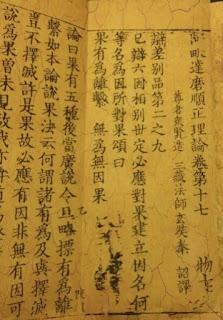 阿毗達磨順正理論卷第十七
物
尊者眾賢造 三藏法師玄奘奉 詔譯
辯差別品第二之九
已辯六因相別世定必應對果建立因名何
等名為因所對果頌曰
果有為離繫 無為無因果
論曰果有五種後當廣說今且略標有為離
繫如本論說果法云何謂諸有為及與擇滅
豈不擇滅許是果故必應有因非無有因可
說為果曾未見故